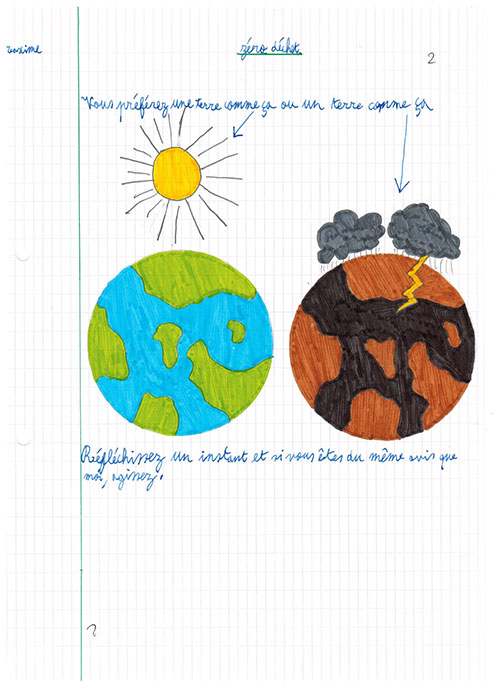 maxime
zéro déchet
2
Vous préférez une terre comme ça ou un terre comme ça
Réfléchissez un instant et si vous êtes du même avis que
moi, agissez.
2